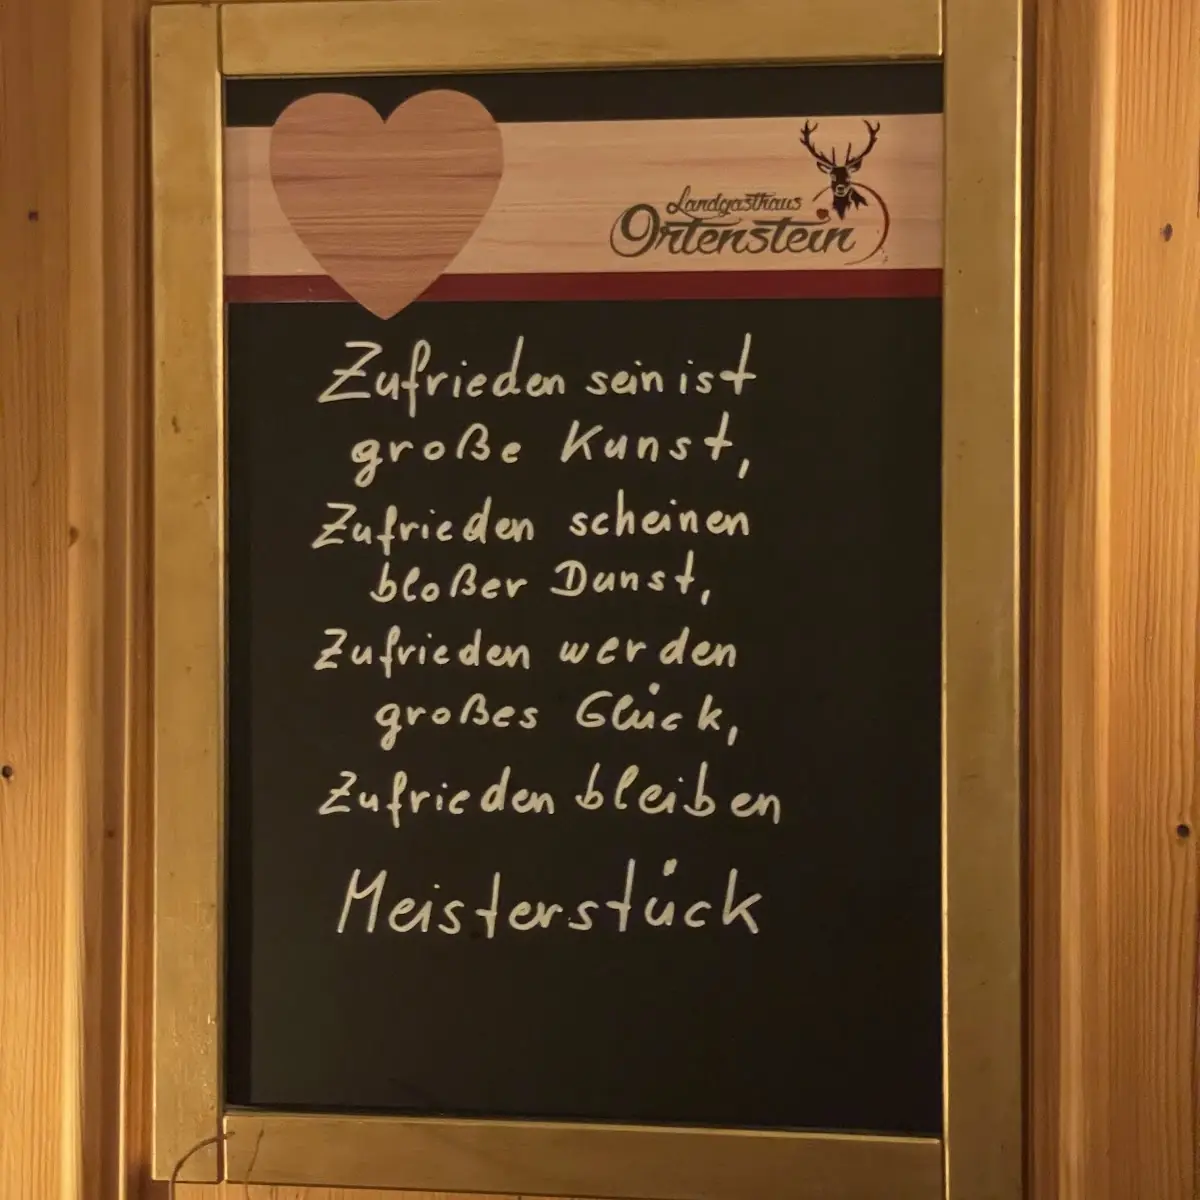 Landgasthaus
Ortenstein
Zufrieden sein ist
große Kunst,
Zufrieden scheinen
bloßer Dunst,
Zufrieden werden
großes Glück,
Zufrieden bleiben
Meisterstück